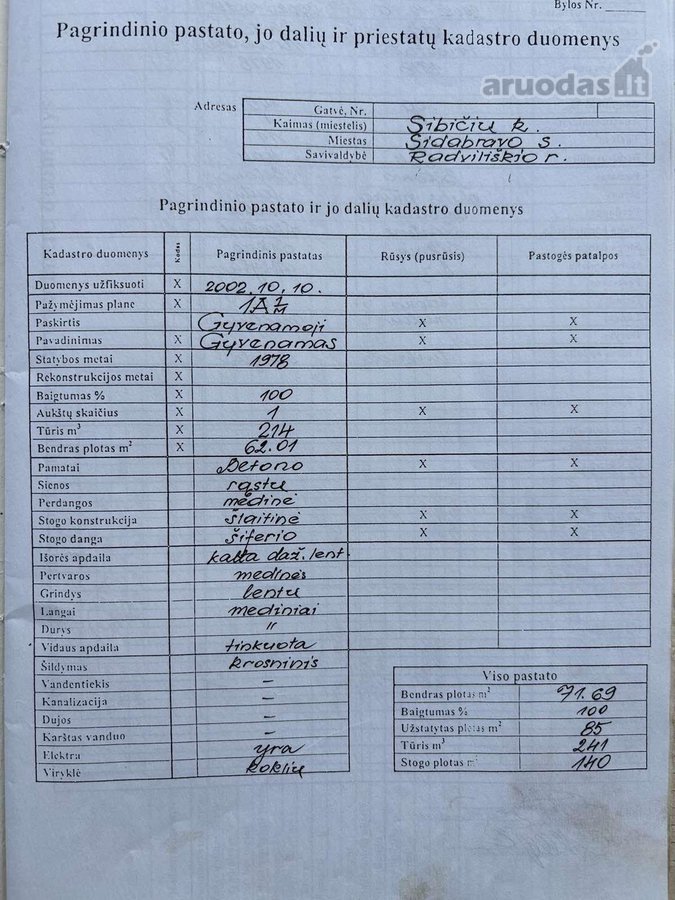 Bylos Nr.
Pagrindinio pastato, jo dalių ir priestatų kadastro duomenys
aruodas.lt
Adresas
Gatvė, Nr.
Kaimas (miestelis) Sibičių k.
Miestas Šidabravo s.
Savivaldybė Radviliškio r.
Pagrindinio pastato ir jo dalių kadastro duomenys
Kadastro duomenys Kodas Pagrindinis pastatas Rūsys (pusrūsis) Pastogės patalpos
Duomenys užfiksuoti X 2002.10.10.
Pažymėjimas plane X 1A 1/M
Paskirtis Gyvenamoji X X
Pavadinimas X Gyvenamas X X
Statybos metai X 1978
Rekonstrukcijos metai X
Baigtumas % X 100
Aukštų skaičius X 1 X X
Tūris m³ X 214
Bendras plotas m² X 62.01
Pamatai Betono X X
Sienos rąstų
Perdangos medinė
Stogo konstrukcija šlaitinė X X
Stogo danga šiferio X X
Išorės apdaila kalta daž. lent.
Pertvaros medinės
Grindys lentų
Langai mediniai
Durys "
Vidaus apdaila tinkuota
Šildymas krosninis
Vandentiekis –
Kanalizacija –
Dujos –
Karštas vanduo –
Elektra yra
Viryklė koklių
Viso pastato
Bendras plotas m² 71.69
Baigtumas % 100
Užstatytas plotas m² 85
Tūris m³ 241
Stogo plotas m² 140